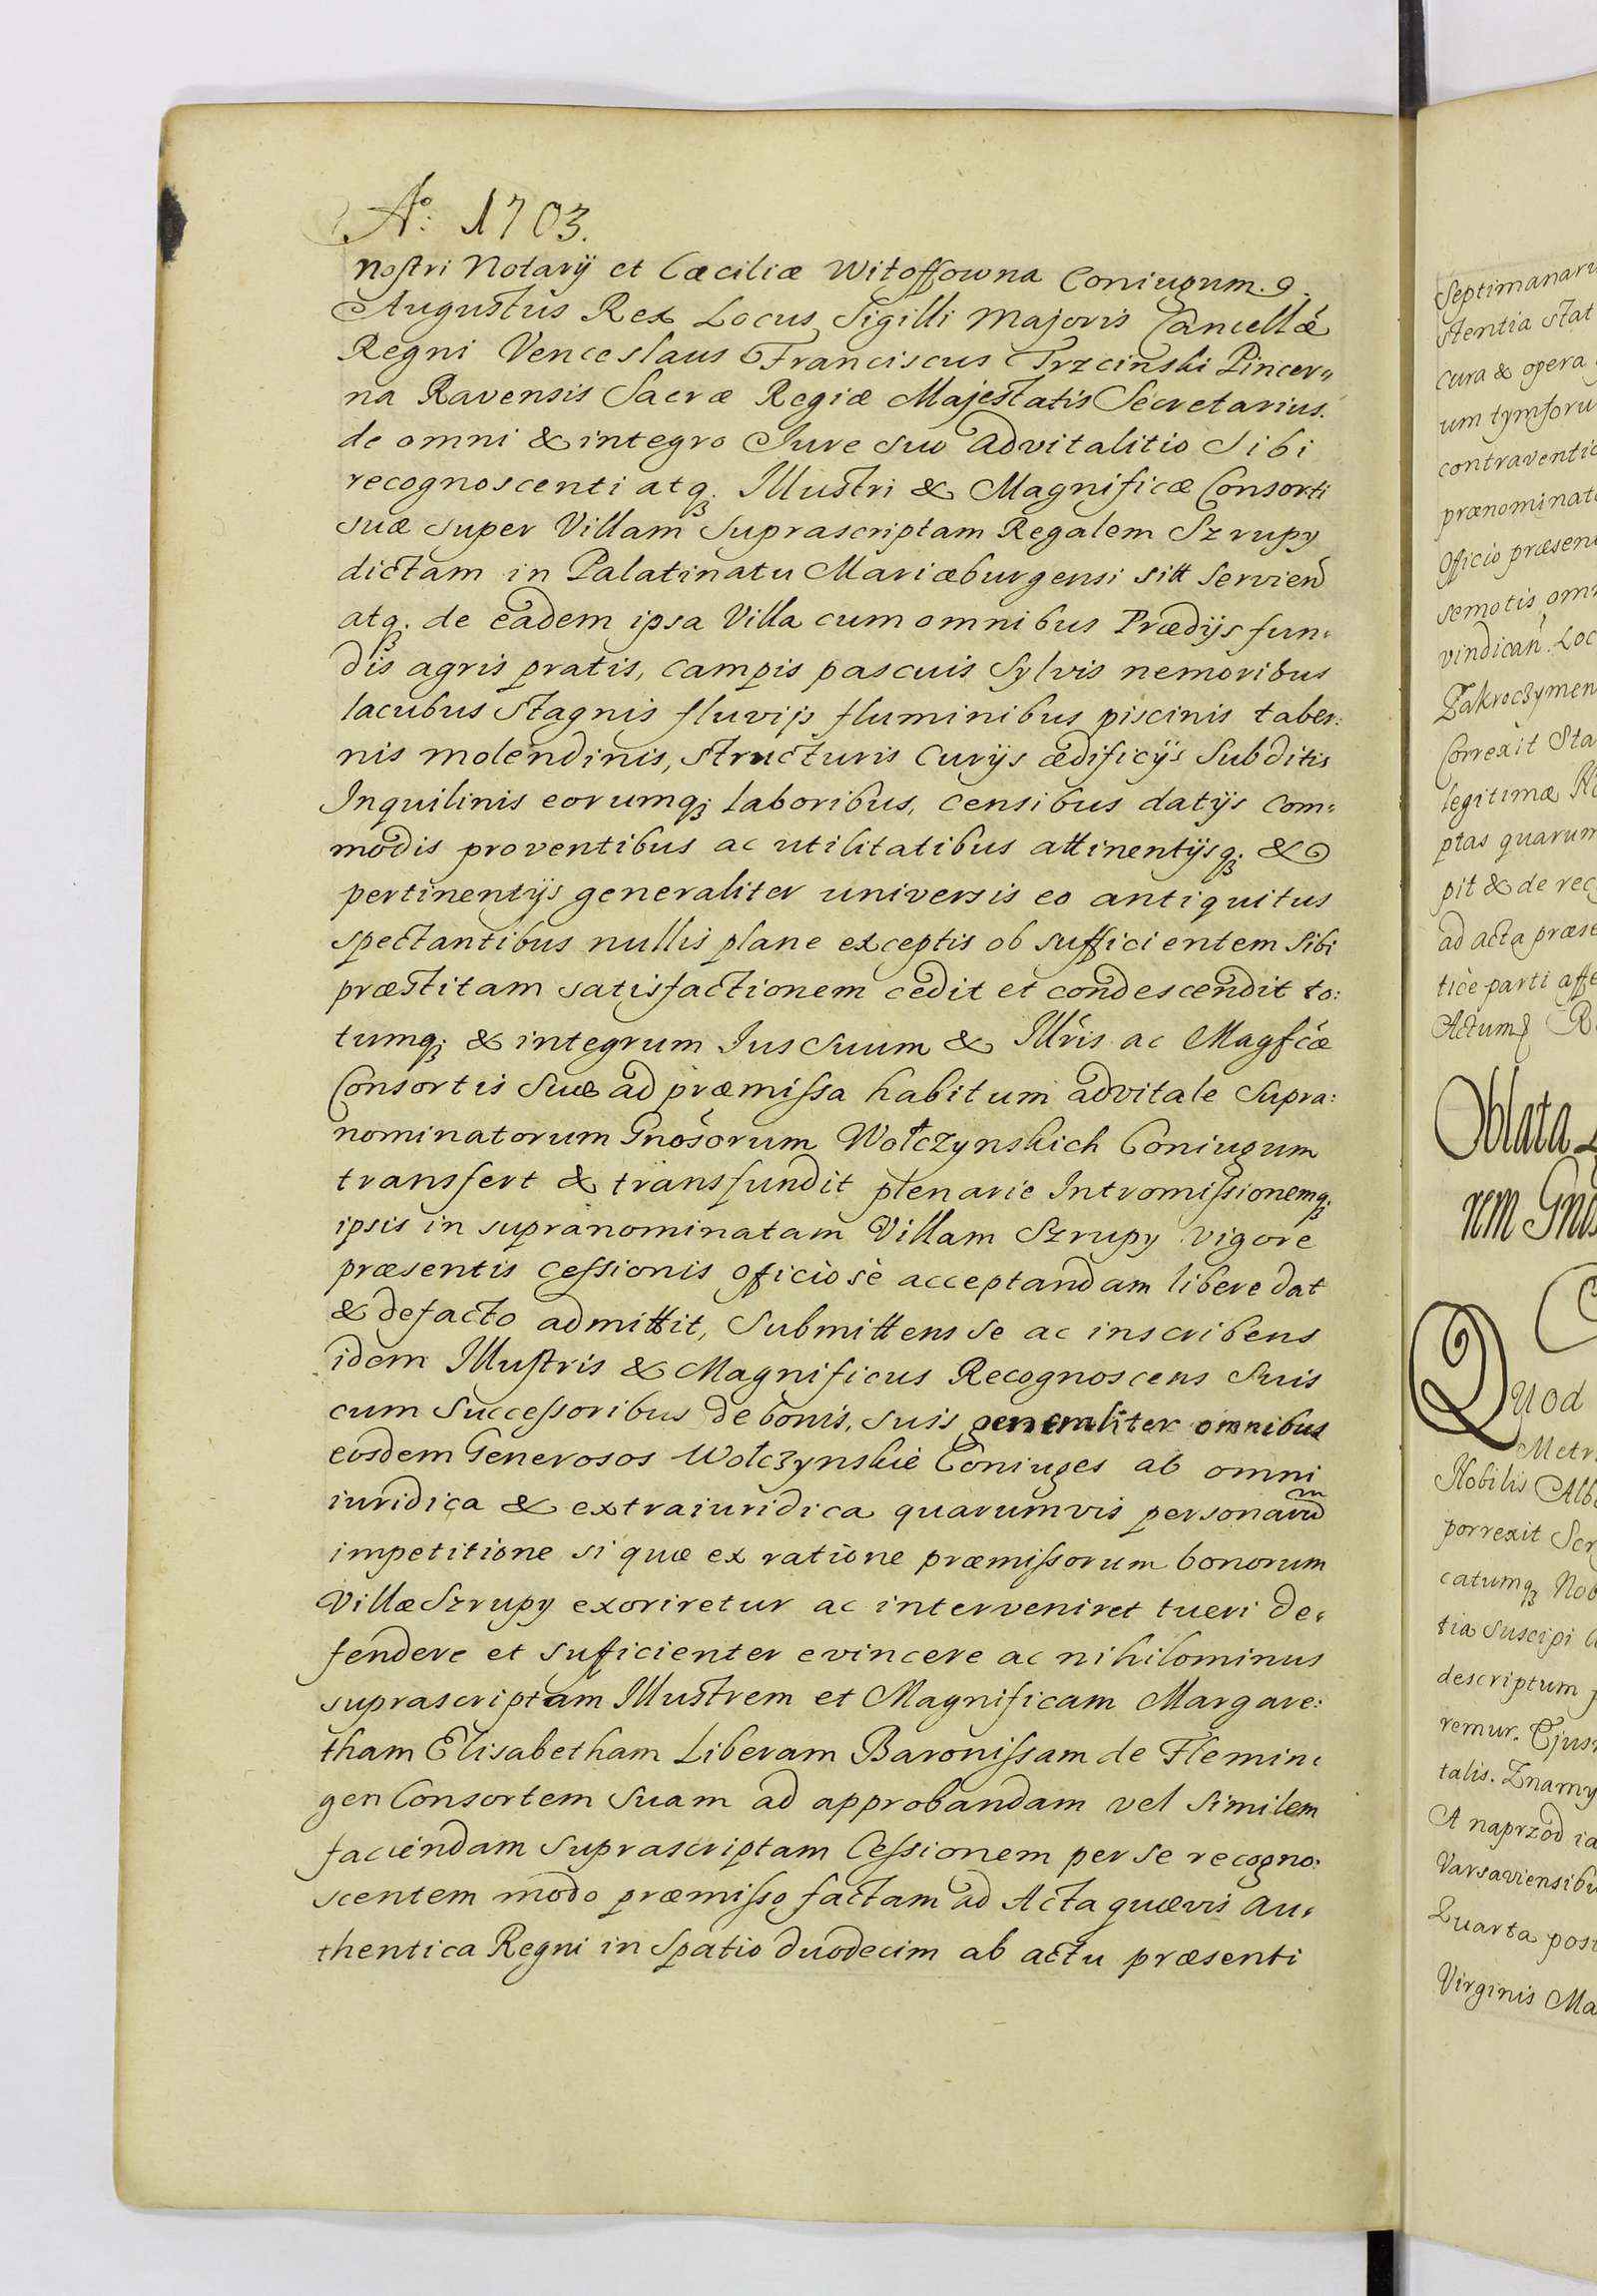 Aº: 1703.
nostri Notarij et Cæciliæ Witoffowna Coniugum.
Augustus Rex Locus Sigilli Majoris Cancellæ
Regni Venceslaus Franciscus Trzcinski Pincer„
na Ravensis Sacræ Regiæ Majestatis Secretarius.
de omni & integro Jure suo advitalitio Sibi
recognoscenti atq; Illustri & Magnificæ Consorti
suæ super Villam Suprascriptam Regalem Szrupy
dictam in Palatinatu Mariæburgensi sitt Servien̄
atq; de eadem ipsa Villa cum omnibus Prædijs fun:
dis agris pratis, campis pascuis Sylvis nemoribus
lacubus Stagnis fluvijs fluminibus piscinis taber:
nis molendinis, structuris Curijs ædificijs Subditis
Inquilinis eorumq; laboribus, censibus datijs com:
modis proventibus ac utilitatibus attinentijsq; &
pertinentijs generaliter universis eo antiquitus
spectantibus nullis plane exceptis ob sufficientem sibi
præstitam satisfactionem cedit et condescendit to:
tumq; & integrum Jus Suum & Illris ac Magfcæ
Consortis Suæ ad præmissa habitum advitale Supra:
nominatorum Gnosorum Wołczynskich Coniugum
transfert & transfundit plenarie Intromissionemq;
ipsis in supranominatam Villam Szrupy vigore
præsentis cessionis oficiosè acceptandam libere dat
& defacto admittit, Submittens se ac inscribens
idem Illustris & Magnificus Recognoscens Suis
cum Successoribus de bonis, suis generaliter omnibus
eosdem Generosos Wołczynskie Coniuges ab omni
iuridica & extraiuridica quarumvis personarum
impetitione si quæ ex ratione præmissorum bonorum
Villæ Szrupy exoriretur ac interveniret tueri de:
fendere et suficienter evincere ac nihilominus
suprascriptam Illustrem et Magnificam Margare:
tham Elisabetham Liberam Baronissam de Flemin:
gen Consortem Suam ad approbandam vel similem
faciendam Suprascriptam Cessionem per se recogno:
scentem modo præmisso factam ad Acta quævis Au:
thentica Regni in Spatio duodecim ab actu præsenti
Septimanaru
stentia stat
cura & opera
um tymforu
contraventio
prænominat
Officio præsen
semotis om
vindican. Loc
Zakroczymen
Correxit Sta
legitimæ
ptas quarum
pit & de rec
ad acta præse
ticè parti affe
Actum
Oblata
rem Gno
Quod
Metr
Nobilis Alb
porrexit Scr
catumq; Nob
tia Suscipi
descriptum
remur. Ejus
talis. Znamy
A naprzod ia
Varsaviensibu
Quarta post
Virginis Ma